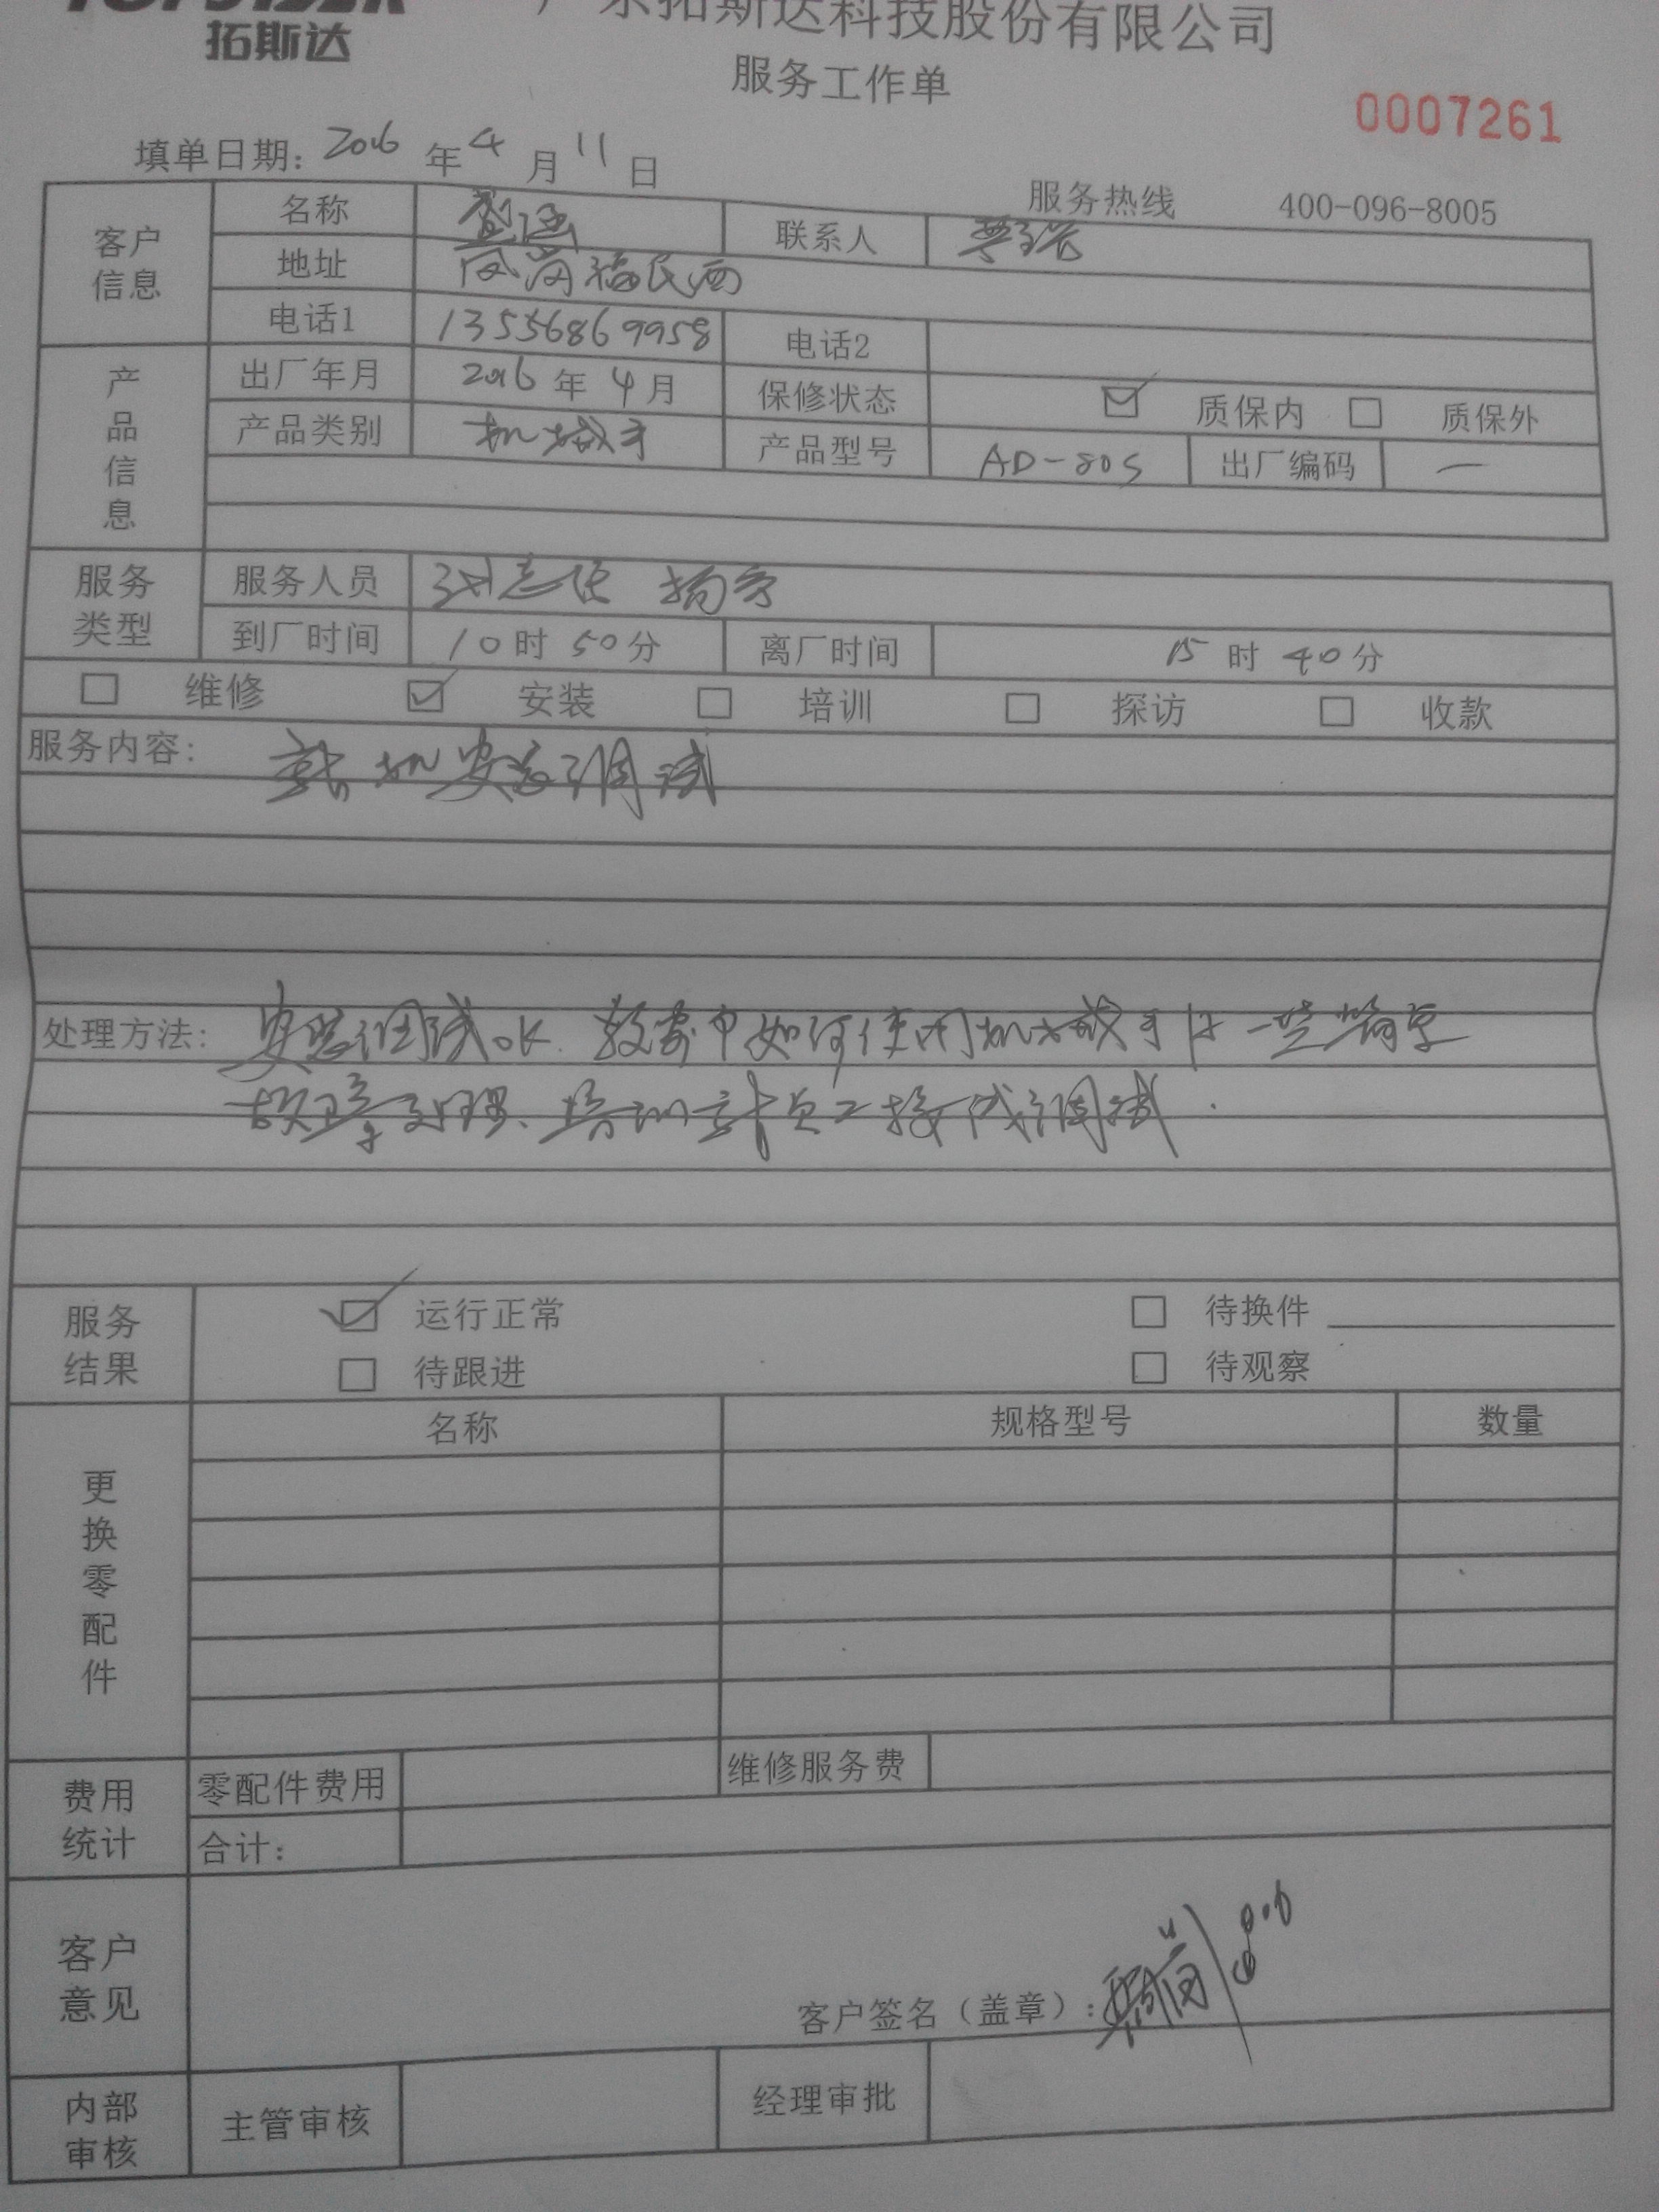 拓斯达
广东拓斯达科技股份有限公司
服务工作单
0007261
填单日期: 2016 年 4 月 11 日
服务热线 400-096-8005
客户信息
名称
联系人
地址 凤岗福民西
电话1 13556869958 电话2
产品信息
出厂年月 2016 年 4 月 保修状态 质保内 质保外
产品类别 机械手 产品型号 AD-80S 出厂编码 一
服务类型
服务人员
到厂时间 10 时 50 分 离厂时间 15 时 40 分
维修 安装 培训 探访 收款
服务内容: 新机安装调试
处理方法: 安装调试OK. 教客户如何使用机械手 一些简单
故障处理、培训 员工 调试.
服务结果
运行正常 待换件
待跟进 待观察
更换零配件
名称 规格型号 数量
费用统计
零配件费用 维修服务费
合计:
客户意见
客户签名（盖章）:
内部审核
主管审核 经理审批